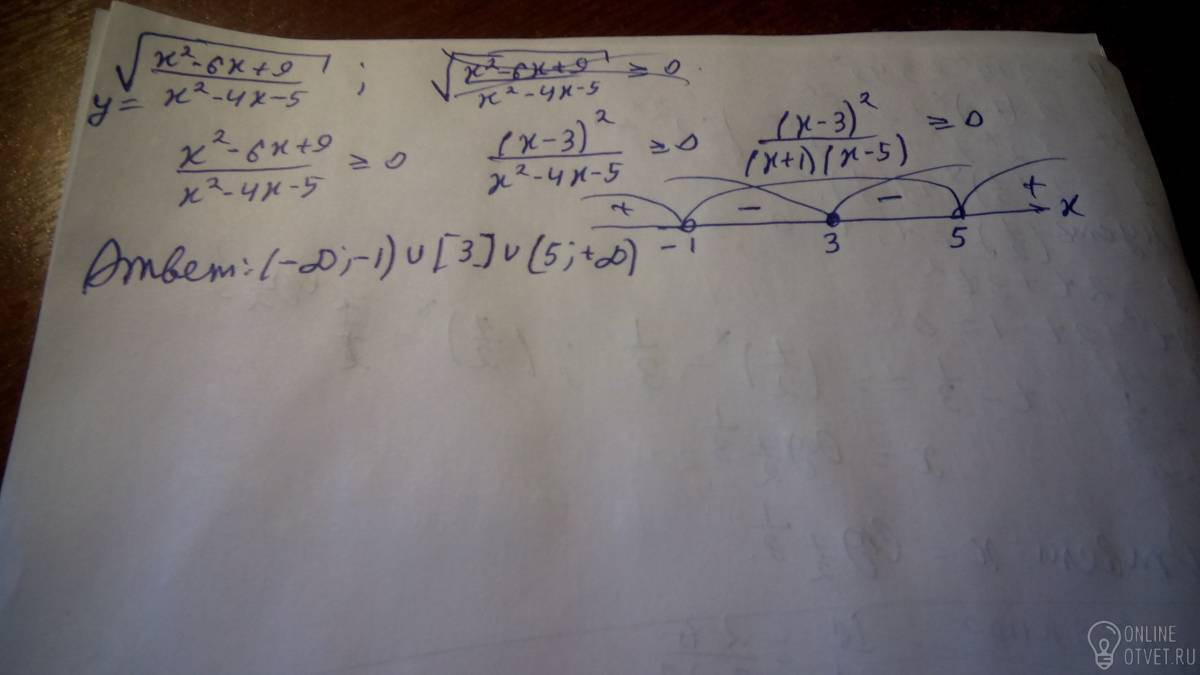 y = √((x²-6x+9)/(x²-4x-5)) ; √((x²-6x+9)/(x²-4x-5)) ≥ 0
(x²-6x+9)/(x²-4x-5) ≥ 0 (x-3)²/(x²-4x-5) ≥ 0 (x-3)²/((x+1)(x-5)) ≥ 0
+ - - + x
-1 3 5
Ответ: (-∞;-1) ∪ [3] ∪ (5;+∞)
ONLINE
OTVET.RU